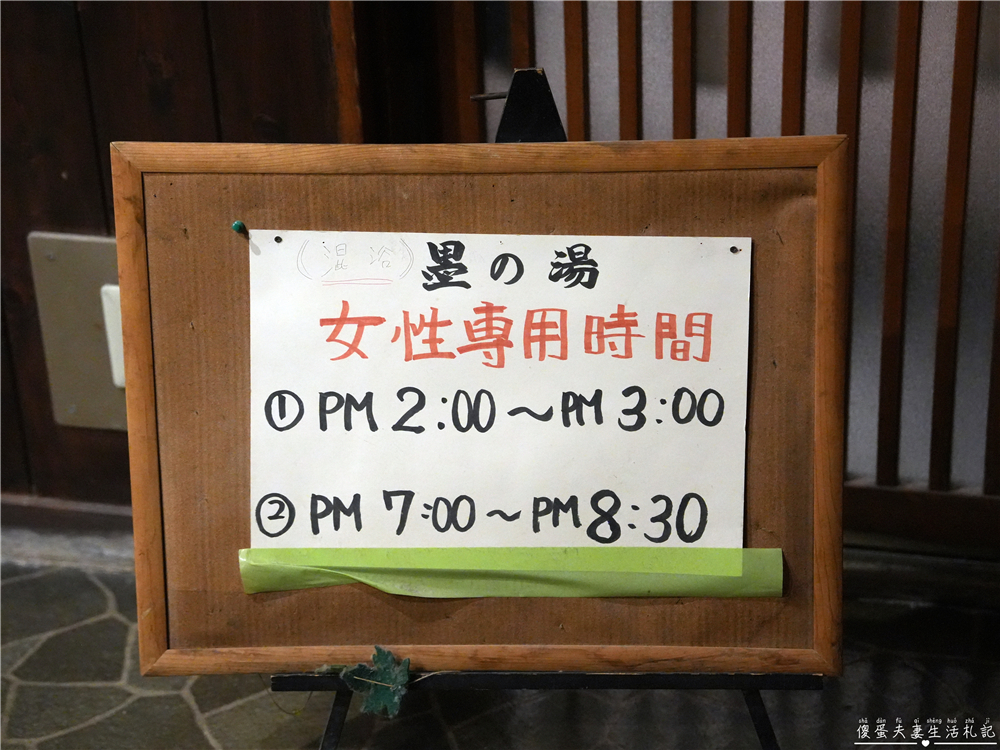 (混浴) 墨の湯
女性専用時間
① PM 2:00～PM 3:00
② PM 7:00～PM 8:30
shǎ dàn fū qī shēng huó zhá jì
傻蛋夫妻生活札記